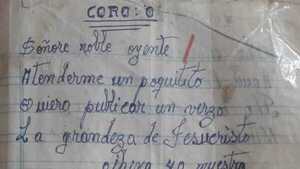 CORO: O
Señore noble oyente
Atenderme un poquitito
Quiero publicar un verzo
La grandeza de Jesucristo
muestra